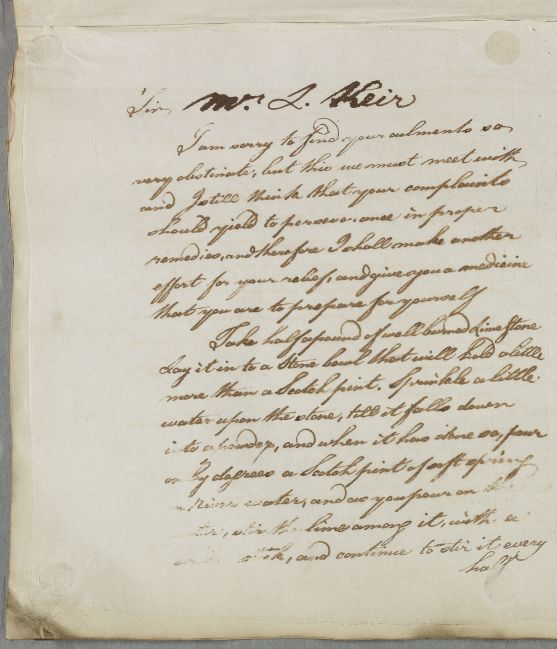 Sir, Mr. L. Keir
I am sorry to find your ailments so
very obstinate, but this we must meet with
and I still think that your complaints
should yield to perseverance in proper
remedies, and therefore I shall make another
effort for your relief, and give you a medicine
that you are to prepare for yourself
Take half a pound of well burned Lime Stone
Lay it in to a Stone bowl that will hold a little
more than a Scotch pint. Sprinkle a little
water upon the stone, till it falls down
into a powder, and when it has done so, pour
on by degrees a Scotch pint of soft spring
River water, and as you pour on the
water, stir the lime among it, with a
stick, and continue to stir it every
half